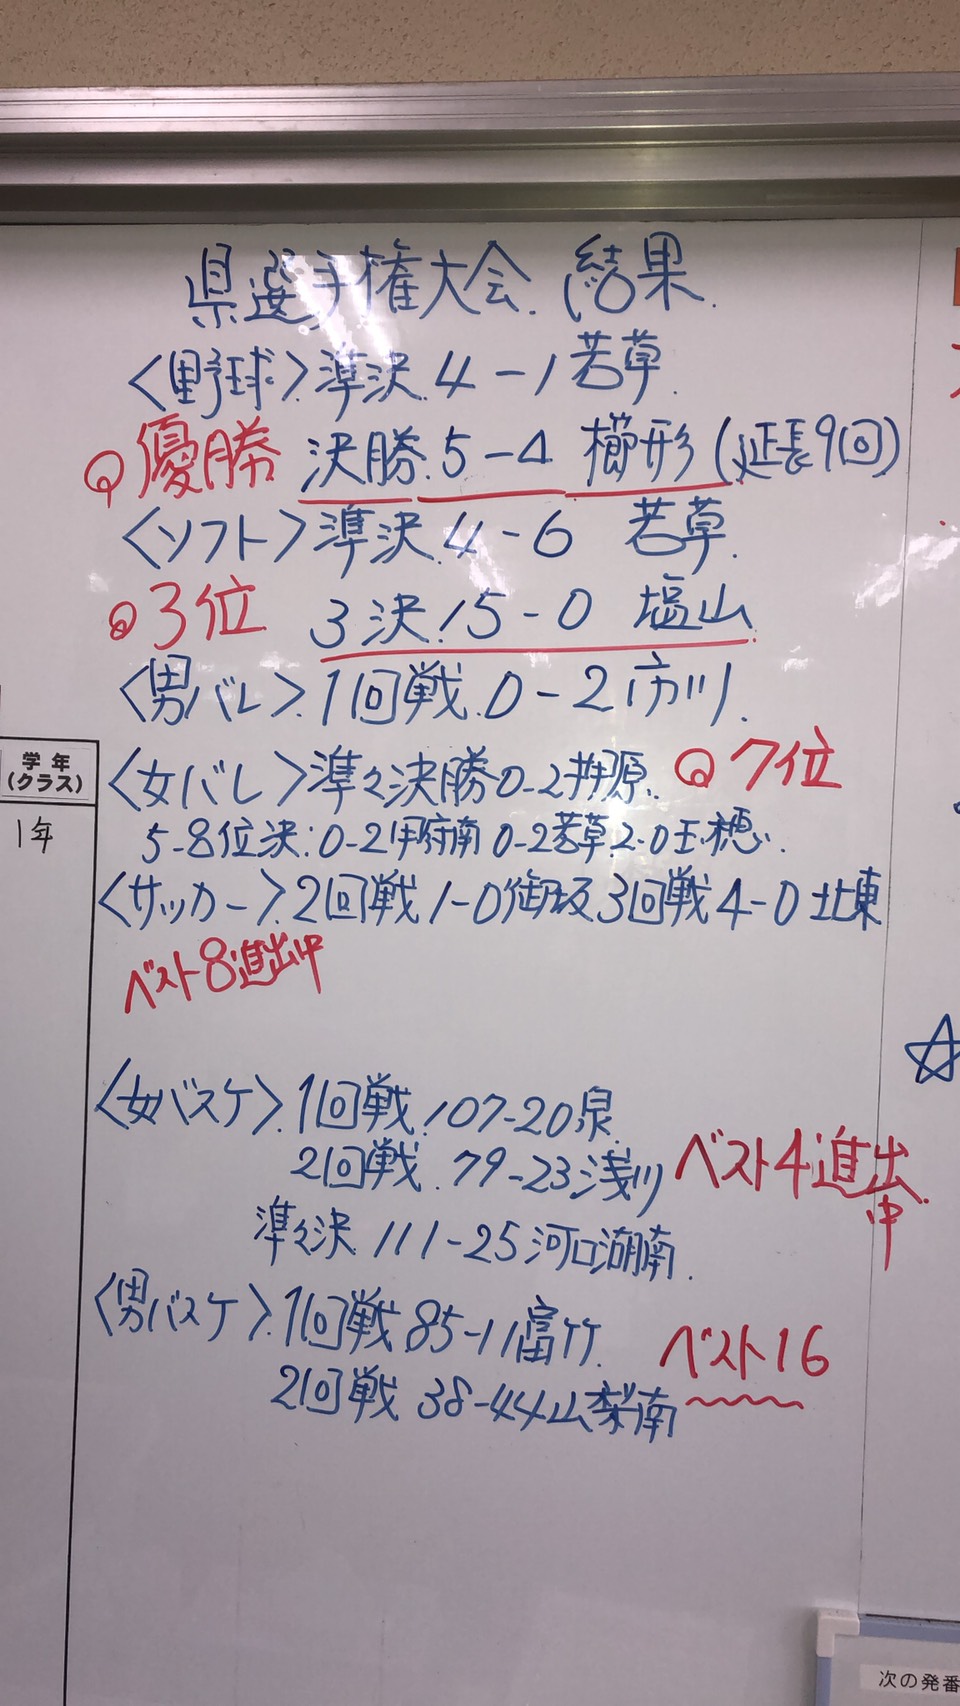 県選手権大会.結果.
〈野球〉準決.4-1若草.
◎優勝 決勝.5-4 櫛形(延長9回)
〈ソフト〉準決.4-6 若草.
◎3位 3決.15-0 塩山.
〈男バレ〉.1回戦.0-2市川.
〈女バレ〉準々決勝0-2押原. ◎7位
5-8位決:0-2甲府南 0-2若草.2-0玉穂.
〈サッカー〉.2回戦1-0御坂3回戦4-0北東
ベスト8進出中
〈女バスケ〉.1回戦.107-20泉.
2回戦.79-23浅川 ベスト4進出中
準々決.111-25河口湖南.
〈男バスケ〉.1回戦.85-11富竹.
ベスト16
2回戦.38-44山梨南
学年
(クラス)
1年
☆
次の発番